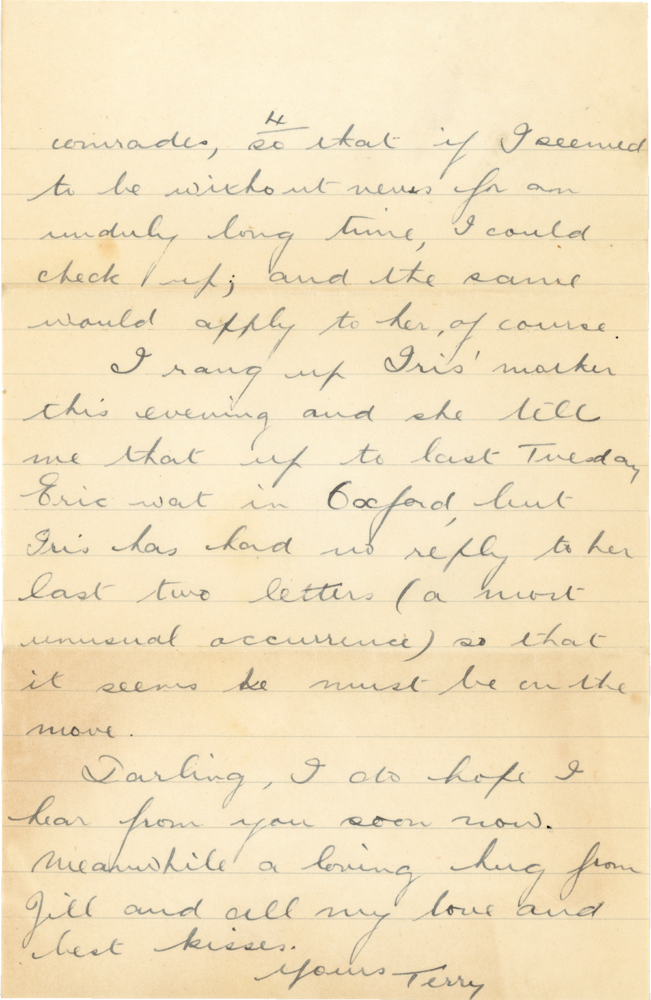 4
comrades, so that if I seemed
to be without news for an
unduly long time, I could
check up; and the same
would apply to her, of course.
I rang up Iris' mother
this evening and she tell
me that up to last Tuesday
Eric wat in Oxford, but
Iris has had no reply to her
last two letters (a most
unusual occurrence) so that
it seems he must be on the
move.
Darling, I do hope I
hear from you soon now.
Meanwhile a loving hug from
Jill and all my love and
best kisses.
Yours Terry